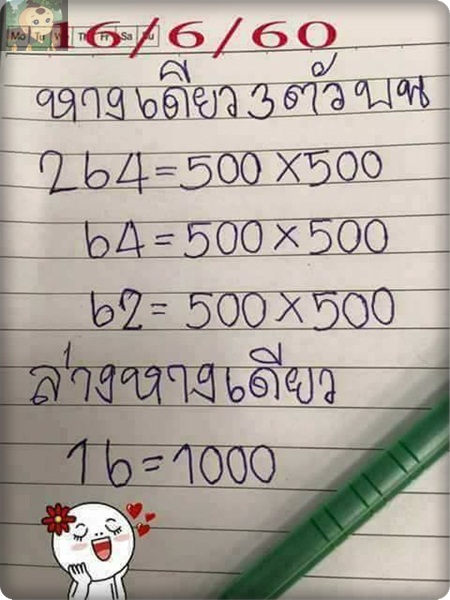 Mo Tu We Th Fr Sa Su
16/6/60
หางเดียว 3 ตัวบน
264 = 500 X 500
64 = 500 X 500
62 = 500 X 500
ล่างหางเดียว
16 = 1000